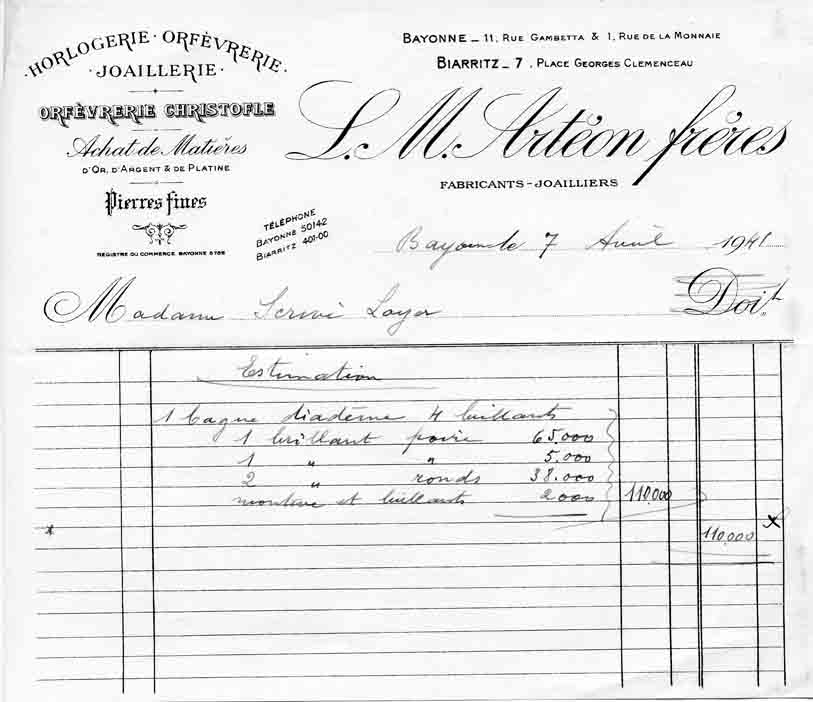 HORLOGERIE · ORFÈVRERIE ·
· JOAILLERIE ·
ORFÈVRERIE CHRISTOFLE
Achat de Matières
D'OR, D'ARGENT & DE PLATINE
Pierres fines
REGISTRE DU COMMERCE BAYONNE 5785
BAYONNE _ 11, RUE GAMBETTA & 1, RUE DE LA MONNAIE
BIARRITZ _ 7, PLACE GEORGES CLEMENCEAU
L. M. Artéon frères
FABRICANTS-JOAILLIERS
TÉLÉPHONE
BAYONNE 501-42
BIARRITZ 401-00
Bayonne le 7 Avril 1941
Madame Scrivé Loyer Doit
Estimation
1 bague diadème 4 brillants
1 brillant poire 65.000
1 " " 5.000
2 " ronds 38.000
monture et brillants 2000 110.000
110.000